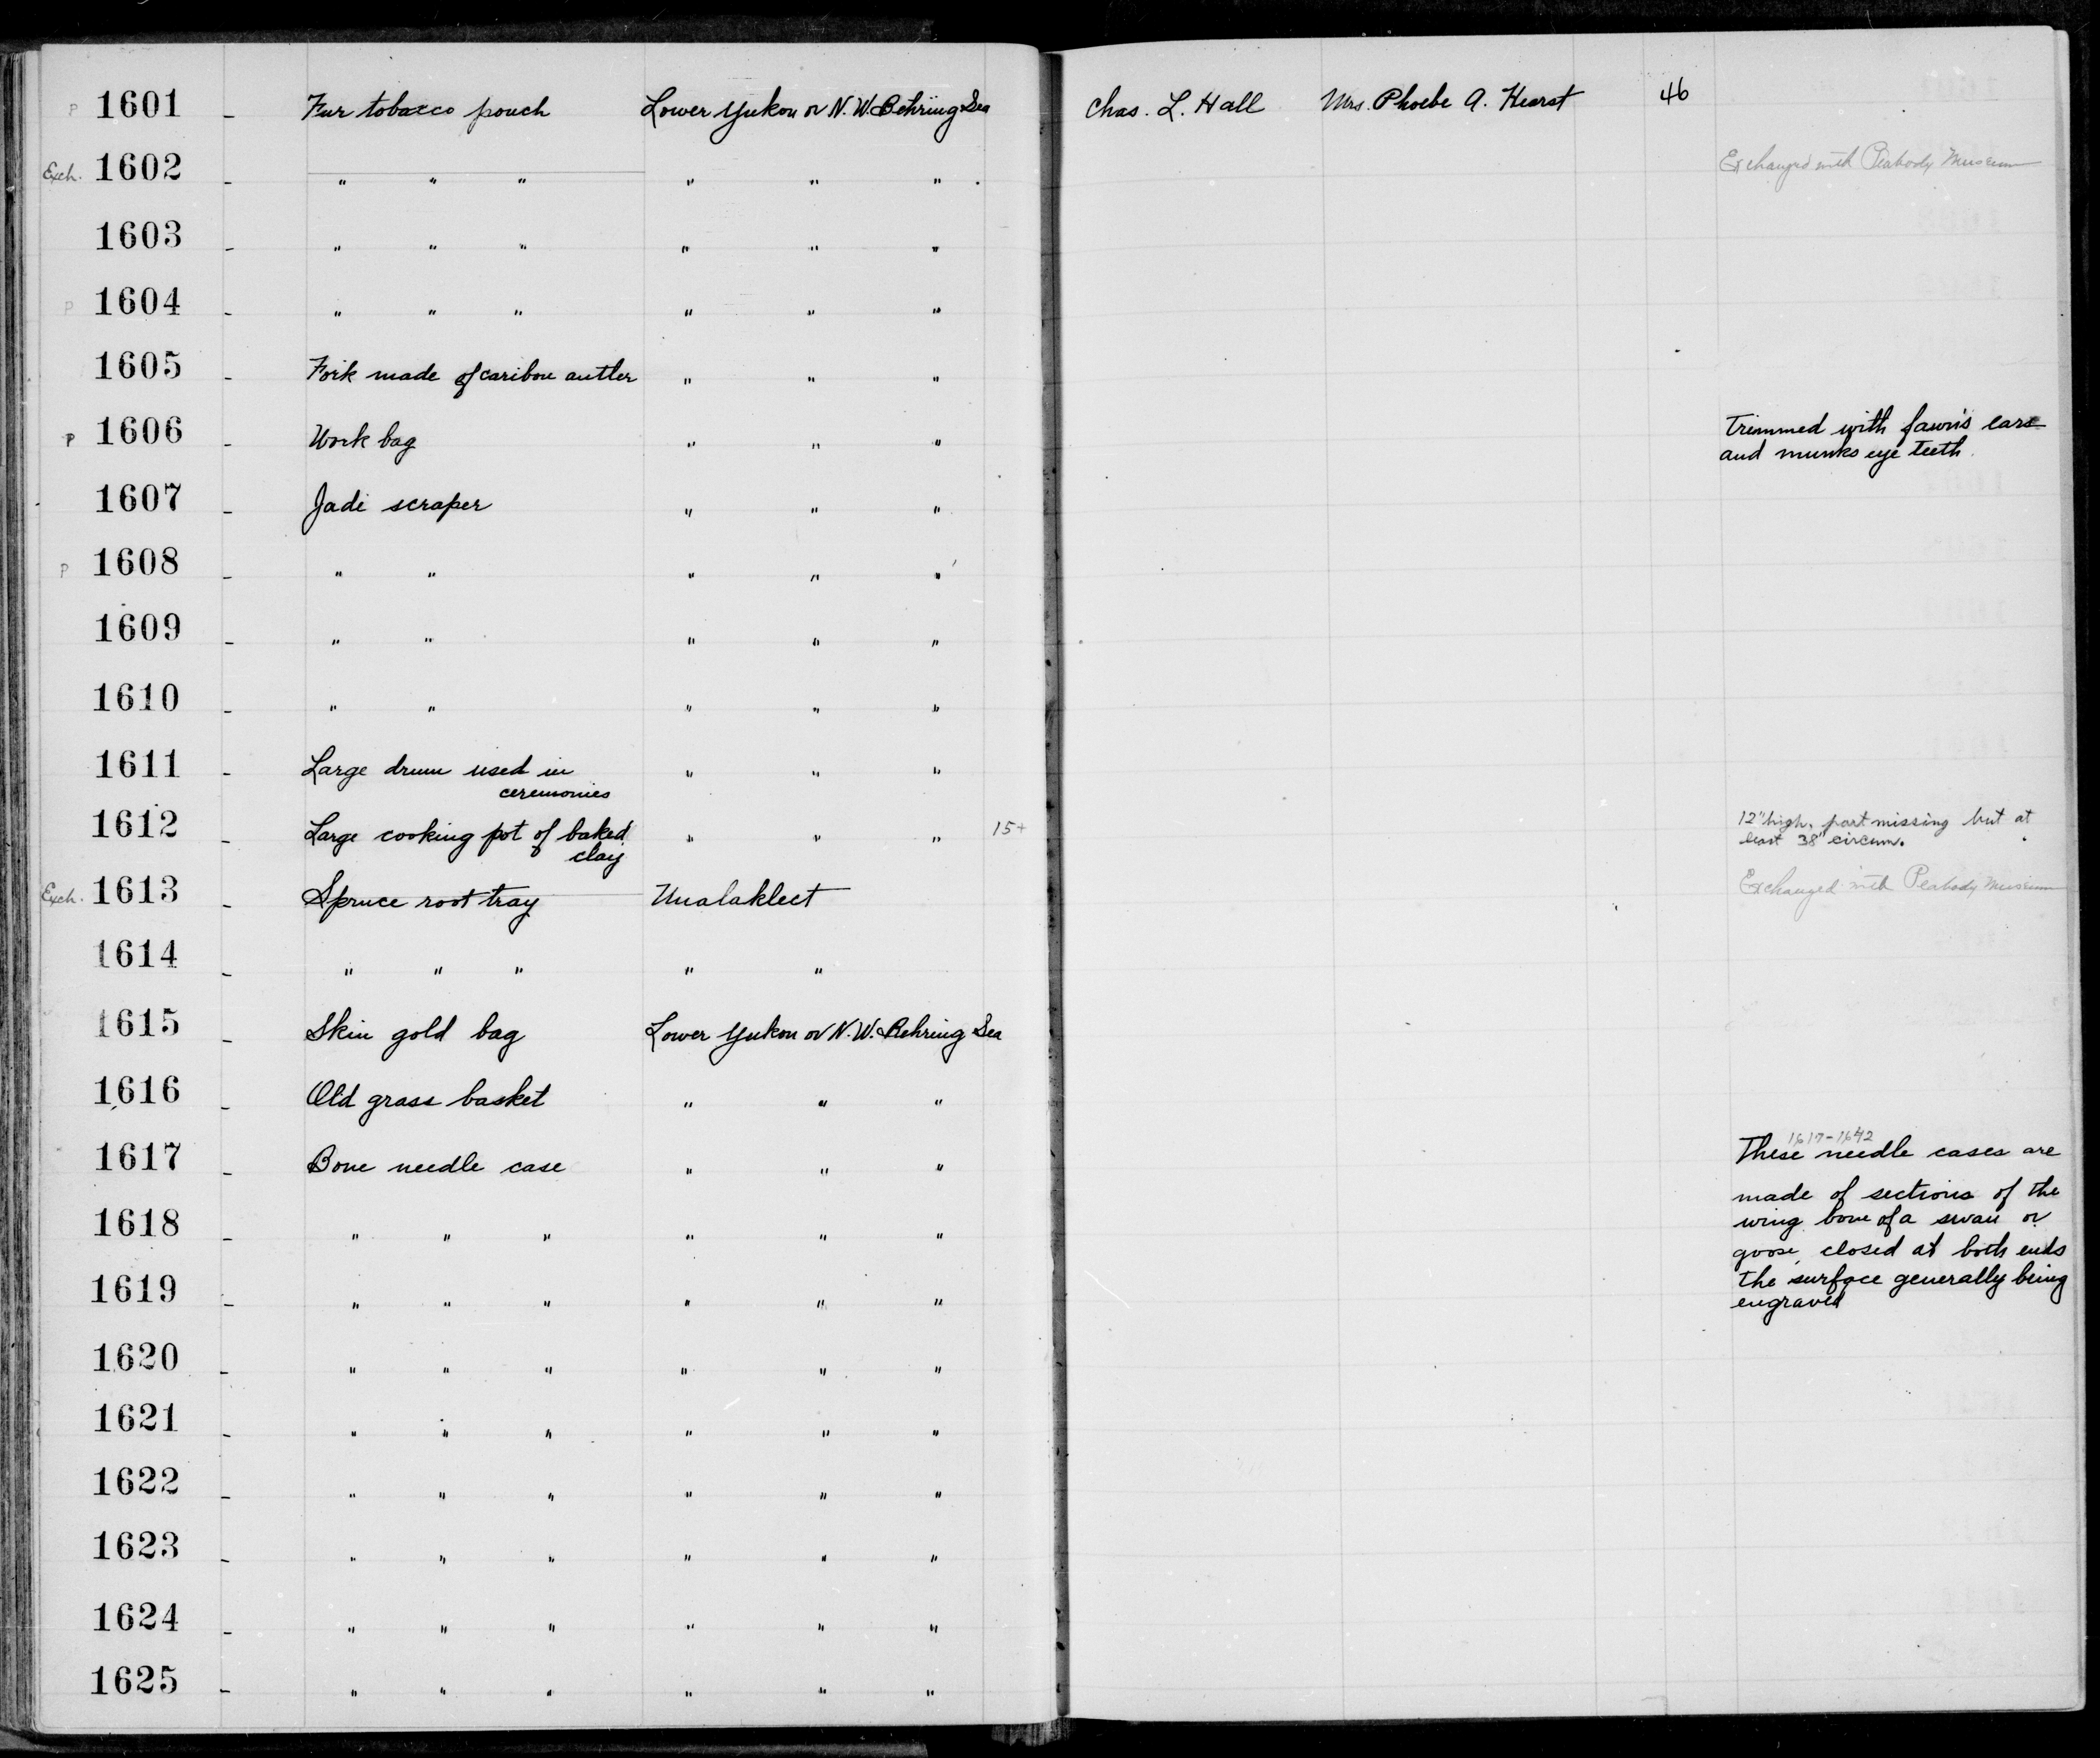 P 1601 - Fur tobacco pouch Lower Yukon or N.W. Behring Sea Chas. L. Hall Mrs. Phoebe A. Hearst 46
Exch. 1602 - " " " " " " Exchanged with Peabody Museum
1603 - " " " " " "
P 1604 - " " " " " "
1605 - Fork made of caribou antler " " "
P 1606 - Work bag " " " Trimmed with fawn's ears
and munks eye teeth
1607 - Jade scraper " " "
P 1608 - " " " " "
1609 - " " " " "
1610 - " " " " "
1611 - Large drum used in " " "
ceremonies
1612 - Large cooking pot of baked " " " 15+ 12" high, part missing but at
clay least 38" circum.
Exch. 1613 - Spruce root tray Unalakleet Exchanged with Peabody Museum
1614 - " " " " "
1615 - Skin gold bag Lower Yukon or N.W. Behring Sea
1616 - Old grass basket " " "
1617-1642
1617 - Bone needle case " " " These needle cases are
made of sections of the
1618 - " " " " " " wing bone of a swan or
goose, closed at both ends
1619 - " " " " " " the surface generally being
engraved
1620 - " " " " " "
1621 - " " " " " "
1622 - " " " " " "
1623 - " " " " " "
1624 - " " " " " "
1625 - " " " " " "